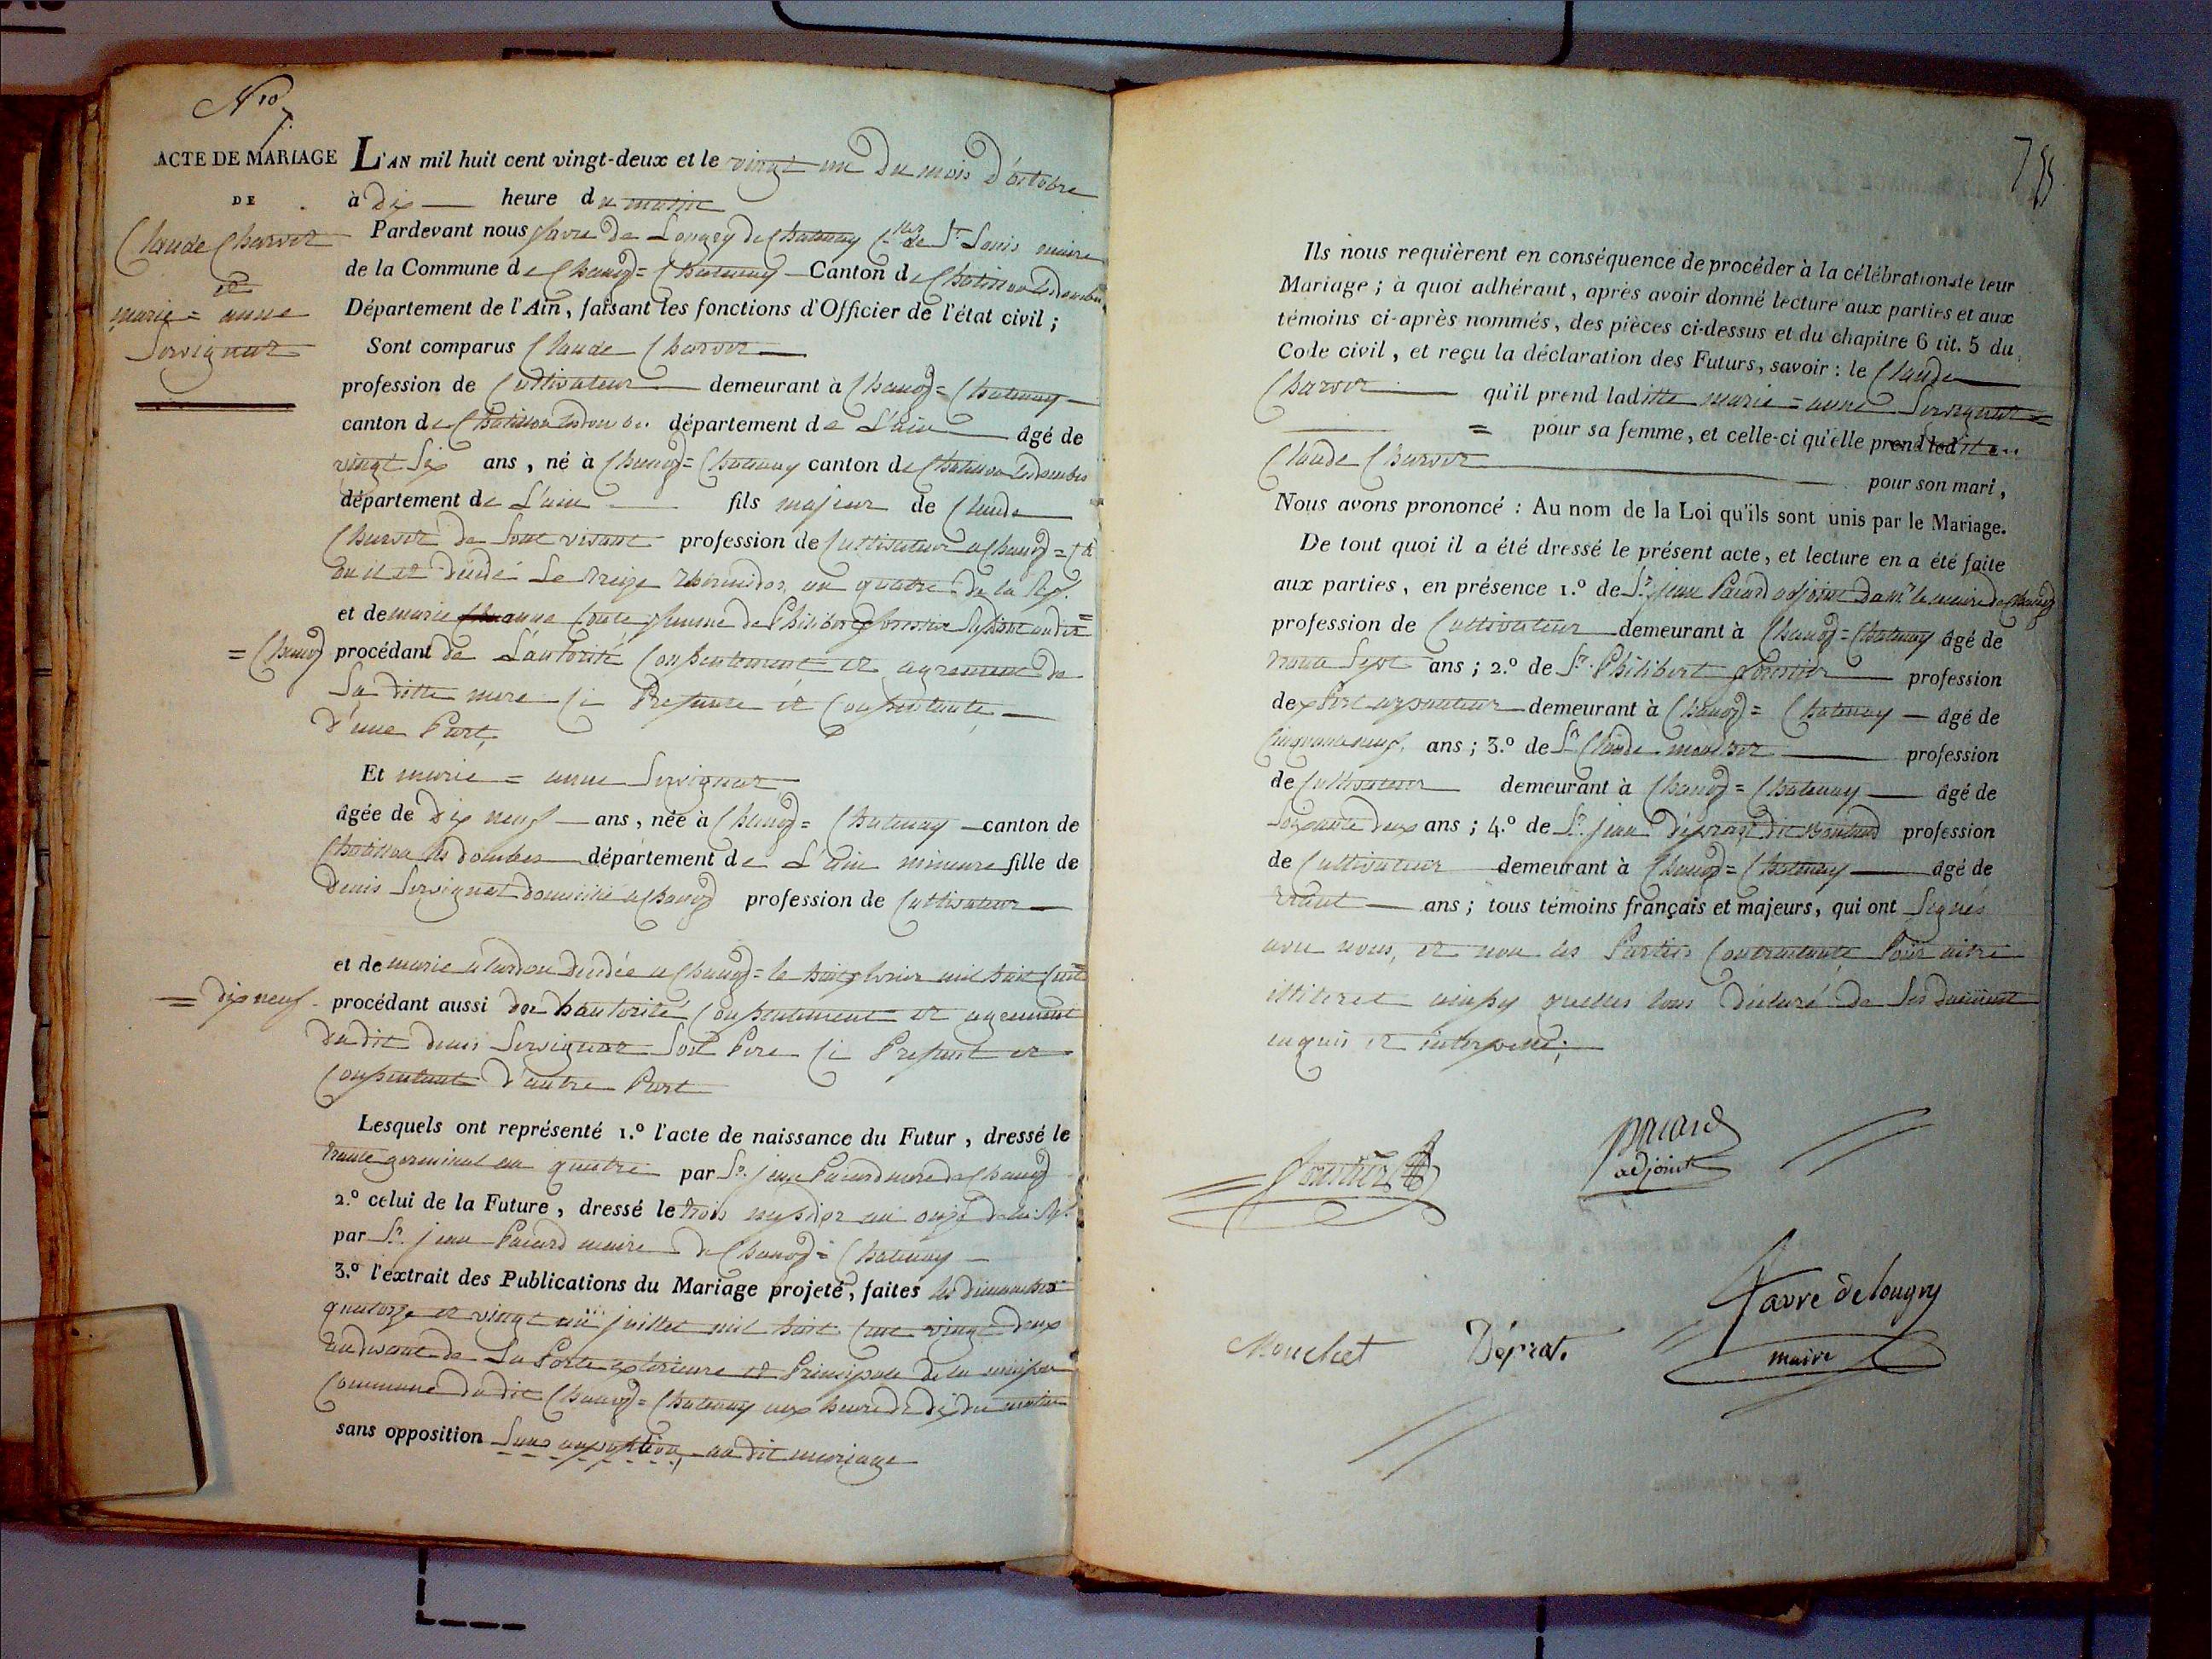 N.ro 7.
ACTE DE MARIAGE
DE
Claude Charvet
et
marie = anne
Servignat
L'AN mil huit cent vingt-deux et le vingt un du mois d'octobre
à dix heure du matin
Pardevant nous favre de Longry de Chatenay de St. Louis maire
de la Commune de Chanoz = Chatenay Canton de Chatillon les dombes
Département de l'Ain, faisant les fonctions d'Officier de l'état civil ;
Sont comparus Claude Charvet
profession de Cultivateur demeurant à Chanoz = Chatenay
canton de Chatillon les dombes département de L'ain âgé de
vingt six ans, né à Chanoz = Chatenay canton de Chatillon les dombes
département de L'ain fils majeur de Claude
Charvet de Son vivant profession de Cultivateur a Chanoz = Ch
ou il est décédé Le treize thermidor an quatre de la Rep.
et de marie anne Conte femme de Philibert forestier audit =
= Chanoz procédant de L'autorité Consentement et agrement de
Sa ditte mere Ci Presente et Consentante
d'une Part,
Et marie = anne Servignat
âgée de Dix neuf ans, née à Chanoz = Chatenay canton de
Chatillon les dombes département de L'ain mineure fille de
denis Servignat domicilié a Chanoz profession de Cultivateur
et de marie décédée a Chanoz = le huit fevrier mil huit Cent =
= dix neuf procédant aussi de L'autorité Consentement et agrement
du dit denis Servignat Son Pere Ci Present et
Consentant d'autre Part
Lesquels ont représenté 1.º l'acte de naissance du Futur, dressé le
trente germinal an quatre par Sr. jean Pacard maire de Chanoz
2.º celui de la Future, dressé le trois messidor an onze de la Rep.
par Sr. jean Pacard maire de Chanoz = Chatenay
3.º l'extrait des Publications du Mariage projeté, faites les dimanches
quatorze et vingt un juillet mil huit Cent vingt deux
au devant de La Porte exterieure et Principale de la maison
Commune du dit Chanoz = Chatenay aux heure de dix du matin
sans opposition Sans opposition au dit mariage
Ils nous requièrent en conséquence de procéder à la célébration de leur
Mariage ; à quoi adhérant, après avoir donné lecture aux parties et aux
témoins ci-après nommés, des pièces ci-dessus et du chapitre 6 tit. 5 du
Code civil, et reçu la déclaration des Futurs, savoir : le Claude
Charvet qu'il prend laditte marie = anne Servignat =
= pour sa femme, et celle-ci qu'elle prend ledit
Claude Charvet pour son mari,
Nous avons prononcé : Au nom de la Loi qu'ils sont unis par le Mariage.
De tout quoi il a été dressé le présent acte, et lecture en a été faite
aux parties, en présence 1.º de Sr. jean Pacard adjoint de mr. le maire de Chanoz
profession de Cultivateur demeurant à Chanoz = Chatenay âgé de
Sept ans ; 2.º de Sr. Philibert forestier profession
d'expert arpenteur demeurant à Chanoz = Chatenay âgé de
Cinquante neuf ans ; 3.º de Sr. Claude mouchet profession
de Cultivateur demeurant à Chanoz = Chatenay âgé de
Soixante deux ans ; 4.º de Sr. jean déprat dit profession
de Cultivateur demeurant à Chanoz = Chatenay âgé de
trente ans ; tous témoins français et majeurs, qui ont Signés
avec nous, et non les Parties Contractante Pour
illiteret ainsy quelles lons déclaré de Ses duëment
enquis et interpellé ;
forestier
pacard
adjoint
favre de longry
maire
Mouchet
Déprat.